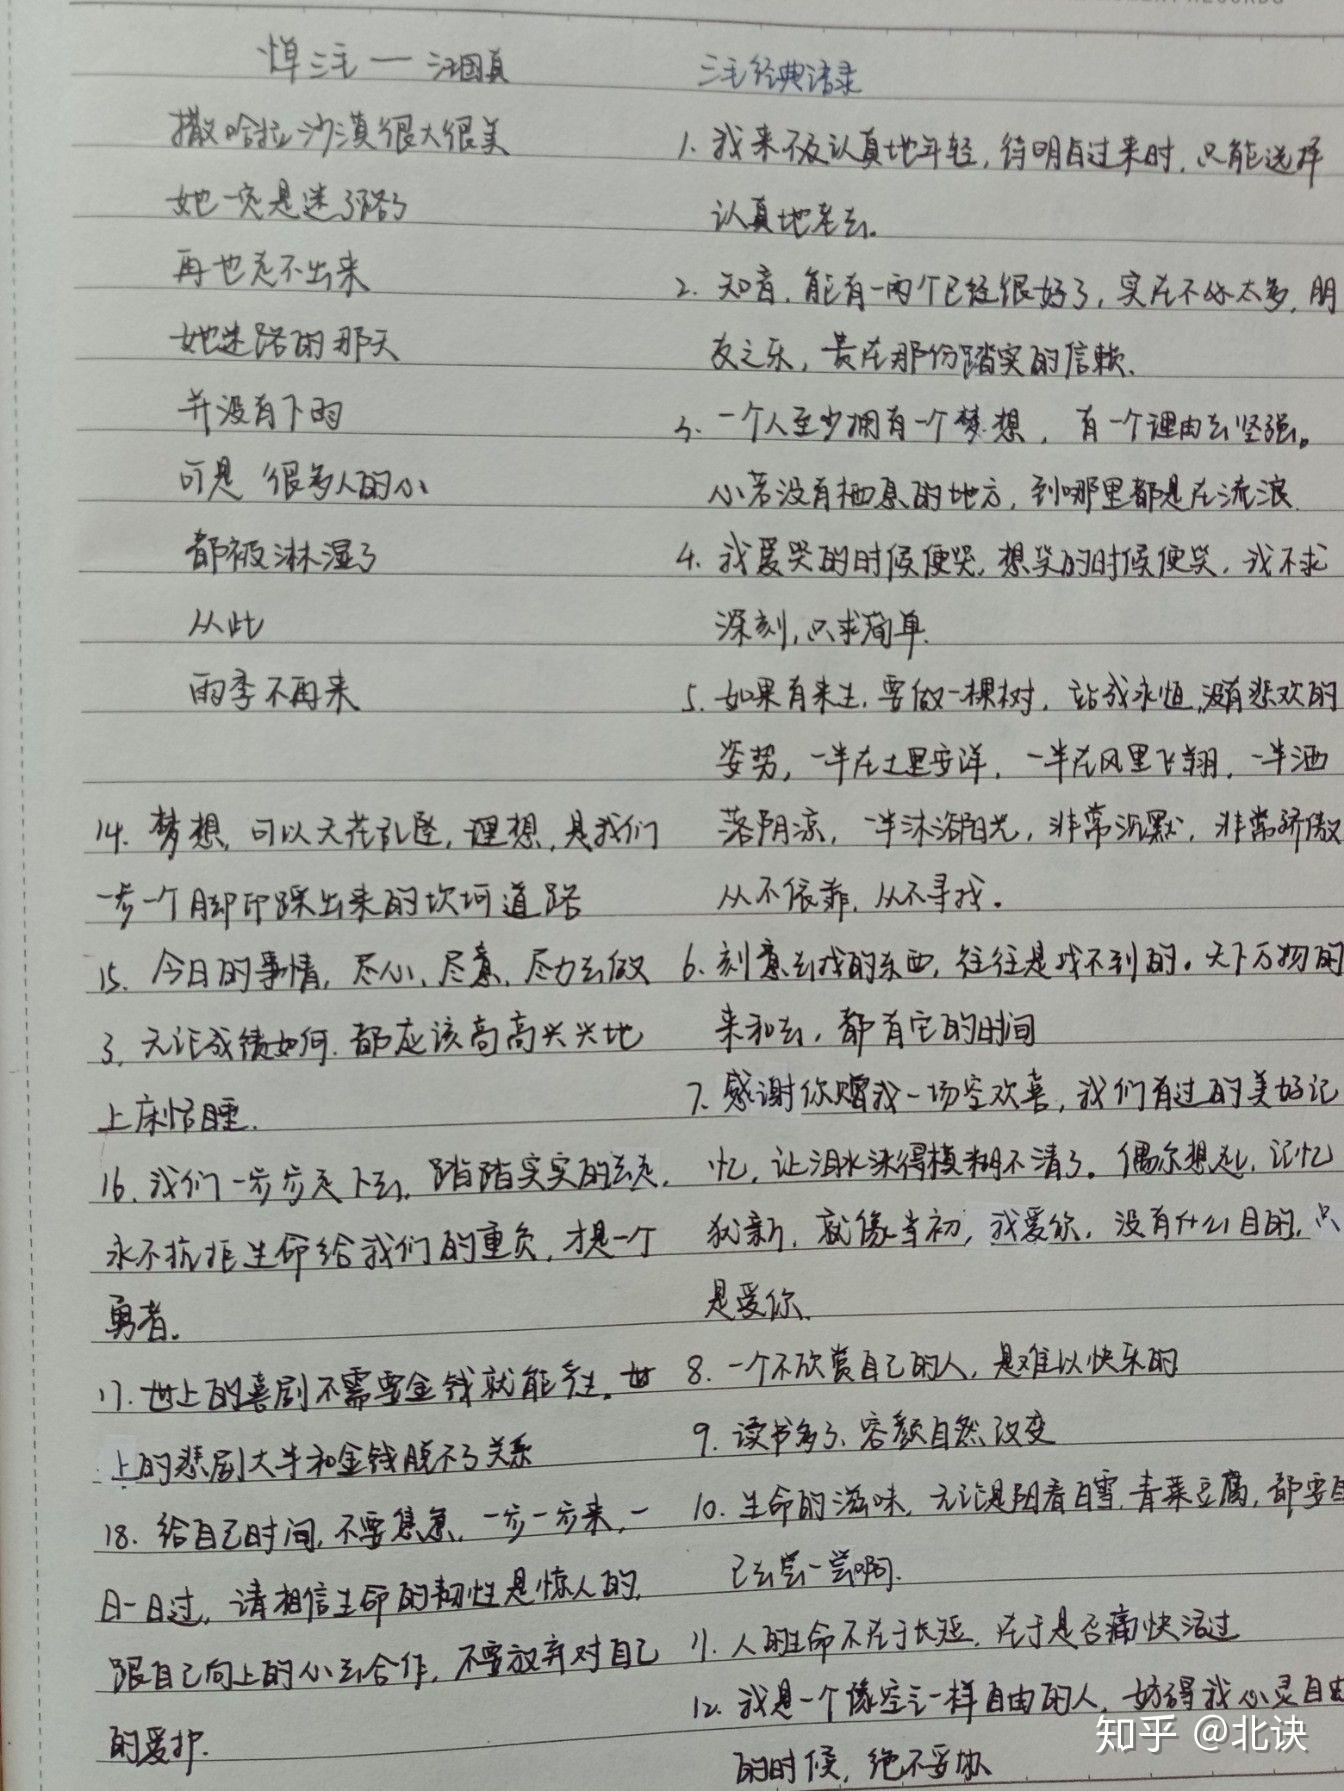 悼三毛一汪国真
撒哈拉沙漠很大很美
她一定是迷了路了
再也走不出来
她迷路的那天
并没有下雨
可是 很多人的心
都被淋湿了
从此
雨季不再来
14. 梦想,可以天花乱坠,理想,是我们
一步一个脚印踩出来的坎坷道路
15. 今日的事情,尽心、尽意、尽力去做
了,无论成绩如何,都应该高高兴兴地
上床恬睡.
16. 我们一步步走下去,踏踏实实的去走,
永不抗拒生命给我们的重负,才是一个
勇者.
17. 世上的喜剧不需要金钱就能产生.世
上的悲剧大半和金钱脱不了关系
18. 给自己时间,不要焦急,一步一步来,一
日一日过,请相信生命的韧性是惊人的,
跟自己向上的心去合作,不要放弃对自己
的爱护.
三毛经典语录
1. 我来不及认真地年轻,待明白过来时,只能选择
认真地老去.
2. 知音,能有一两个已经很好了,实在不必太多,朋
友之乐,贵在那份踏实的信赖.
3. 一个人至少拥有一个梦想,有一个理由去坚强。
心若没有栖息的地方,到哪里都是在流浪
4. 我爱哭的时候便哭,想笑的时候便笑,我不求
深刻,只求简单.
5. 如果有来生,要做一棵树,站成永恒,没有悲欢的
姿势,一半在土里安详,一半在风里飞翔,一半洒
落阴凉,一半沐浴阳光,非常沉默,非常骄傲
从不依靠,从不寻找。
6. 刻意去找的东西,往往是找不到的。天下万物的
来和去,都有它的时间
7. 感谢你赠我一场空欢喜,我们有过的美好记
忆,让泪水冰得模糊不清了。偶尔想起,记忆
犹新,就像当初,我爱你,没有什么目的,只
是爱你
8. 一个不欣赏自己的人,是难以快乐的
9. 读书多了,容颜自然改变
10. 生命的滋味,无论是阳春白雪,青菜豆腐,都要自
己去尝一尝啊.
11. 人的生命不在于长短,在于是否痛快活过
12. 我是一个像空气一样自由的人,妨碍我心灵自由
的时候,绝不妥协
知乎 @北诀